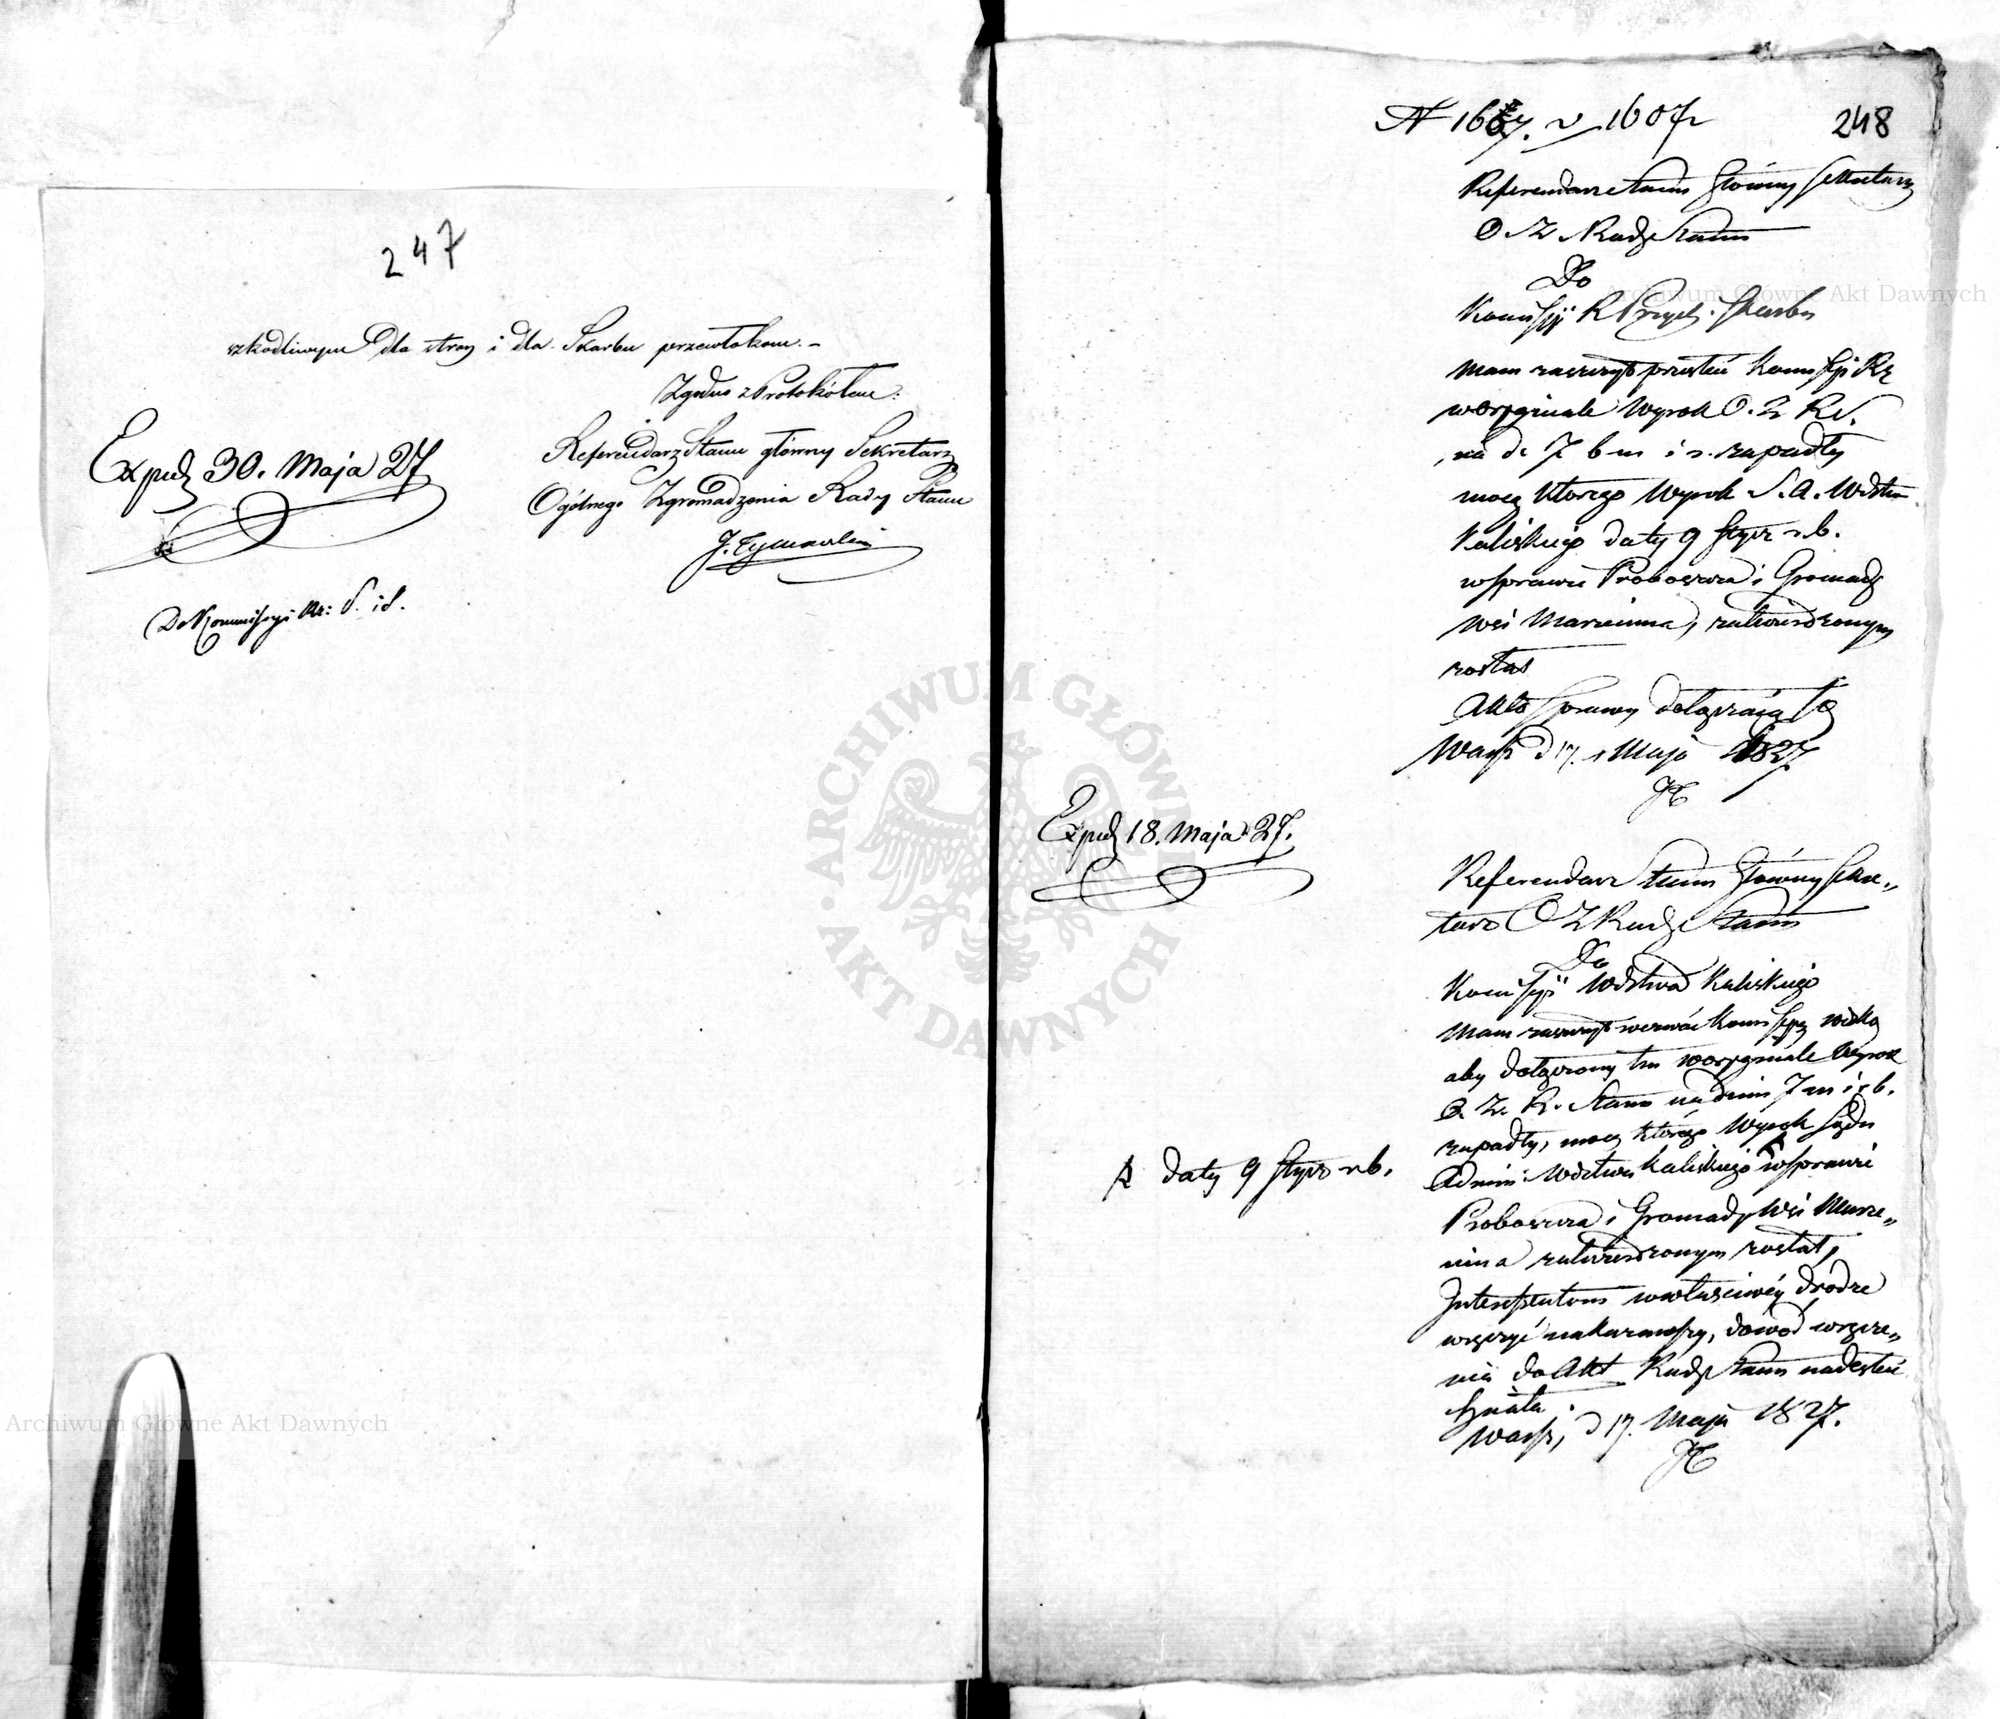 247
szkodliwym dla stron i dla Skarbu przewłokom. –
Zgodno z Protokółem:
Referendarz Stanu główny Sekretarz
Ogólnego Zgromadzenia Rady Stanu
Exped 30. Maja 27
Do Kommissyi Rz: P. i S.
N 1607r
248
Referendarz Stanu Główny Sekretarz
O Z Rady Stanu
Do
Komissyi R Przych: Skarbu
Mam zaszczyt przesłać Komissyi Rz
w oryginale Wyrok O. Z. R S.
na d. 7 b m i r. zapadły
mocą którego Wyrok S. A. Wdztwa
Kaliskiego daty 9 Stycz r. b.
w sprawie Proboszcza i Gromady
Wsi Marzenina, zatwierdzonym
został
Akta Sprawy dołączają się
Warsz d 17. Maja 1827
JT
Exped 18. Maja 27.
Referendarz Stanu Główny Sekre„
tarz O Z Rady Stanu
Do
Komissyi Wdztwa Kaliskiego
Mam zaszczyt wezwać Komissyę Wdzką
aby dołączony tu w oryginale Wyrok
O. Z. R. Stanu na dniu 7 m i r b.
zapadły, mocą którego Wyrok Sądu
Admin: Wdztwa Kaliskiego w sprawie
daty 9 Stycz r. b.
Proboszcza i Gromady Wsi Marze„
nina zatwierdzonym został,
Interessentom w właściwéy drodze
wręczyć nakazawszy, dowód wręcze„
nia do Akt Rady Stanu nadesłać
chciała.
Warsz, d 17. Maja 1827.
JT
Archiwum Główne Akt Dawnych
Archiwum Główne Akt Dawnych
ARCHIWUM GŁÓWNE • AKT DAWNYCH •